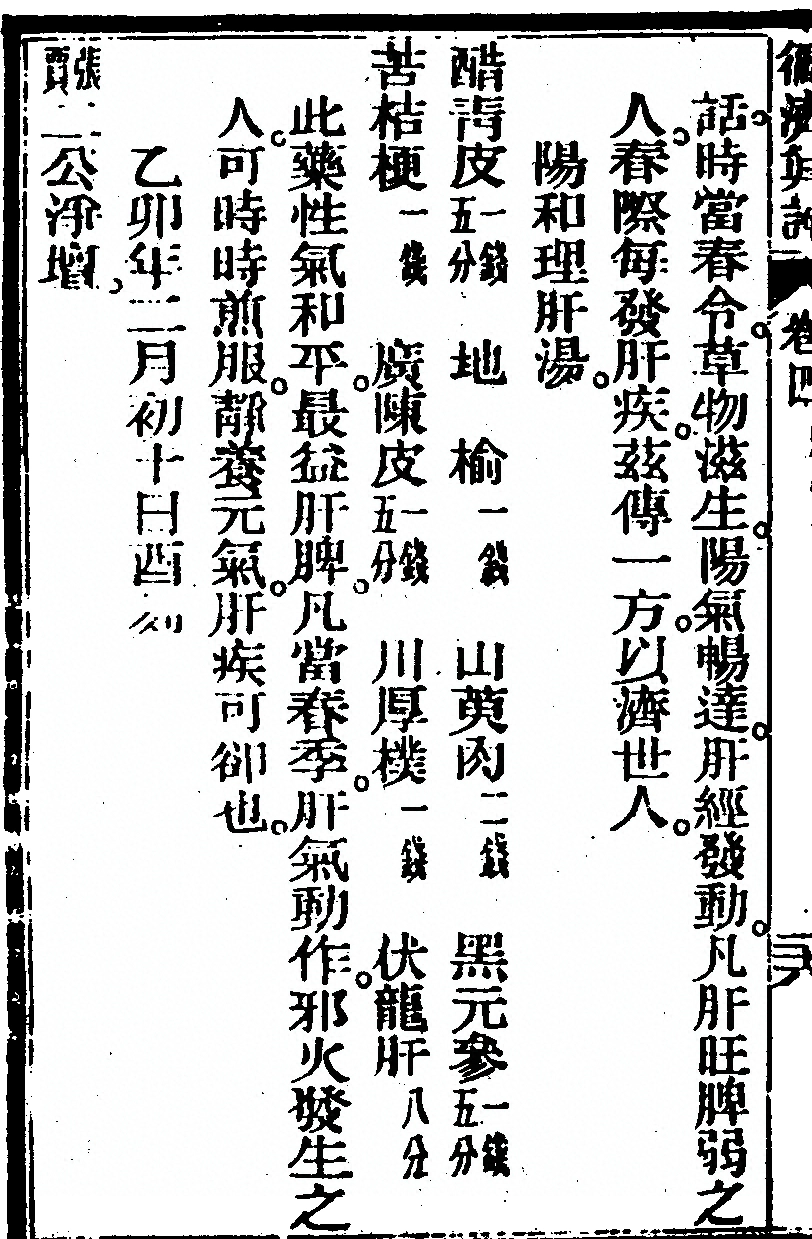 話。時當春令。草物滋生。陽氣暢達。肝經發動。凡肝旺脾弱之
人。春際每發肝疾。茲傳一方。以濟世人。
陽和理肝湯。
醋青皮一錢五分 地榆一錢 山萸肉二錢 黑元參一錢五分
苦桔梗一錢 廣陳皮一錢五分 川厚樸一錢 伏龍肝八分
此藥性氣和平。最益肝脾。凡當春季。肝氣動作。邪火發生之
人。可時時煎服。靜養元氣。肝疾可卻也。
乙卯年二月初十日酉刻
張賈二公淨壇。
卷四